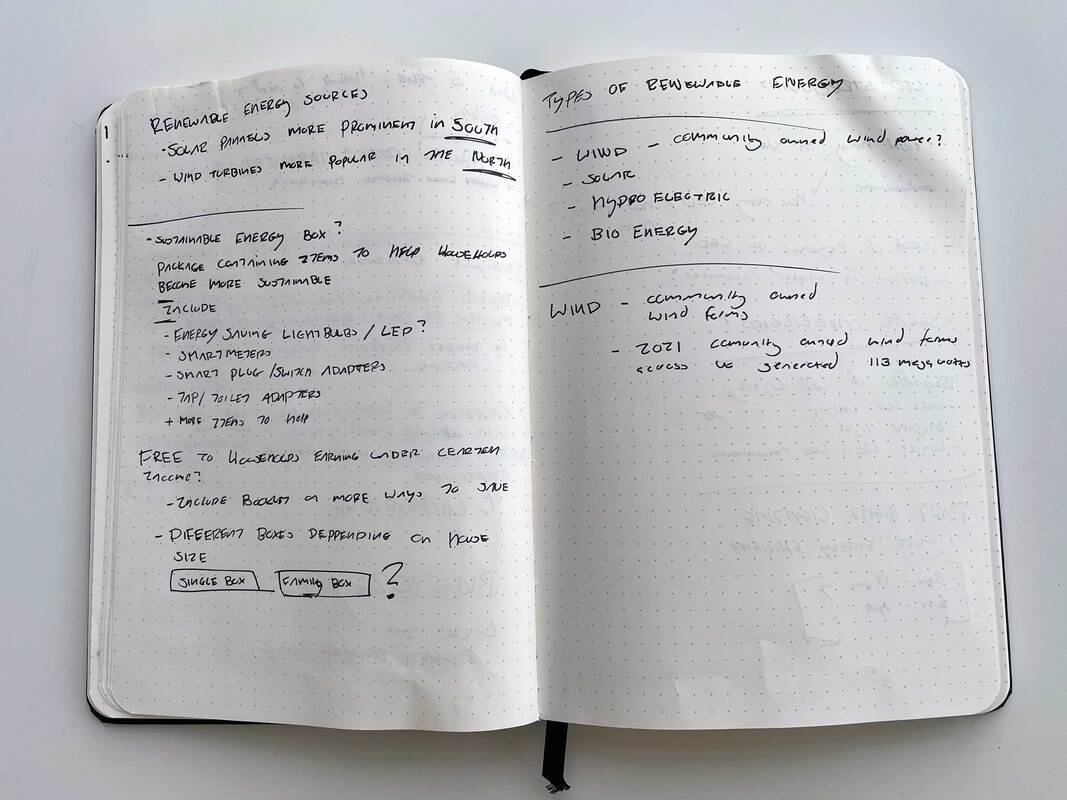 RENEWABLE ENERGY SOURCES
- SOLAR PANNELS MORE PROMINENT in SOUTH
- WIND TURBINES MORE POPULAR IN THE NORTH
- SUSTAINABLE ENERGY BOX?
PACKAGE CONTAINING ITEMS TO HELP HOUSEHOLDS
BECOME MORE SUSTAINABLE
INCLUDE
- ENERGY SAVING LIGHTBULBS / LED?
- SMART METERS
- SMART PLUG / SWITCH ADAPTERS
- TAP / TOILET ADAPTERS
+ MORE ITEMS TO HELP
FREE TO HOUSEHOLDS EARNING UNDER CEARTEN
INCOME?
- INCLUDE BOOKLET ON MORE WAYS TO SAVE
- DIFFERENT BOXES DEPPENDING ON HOUSE
SIZE
SINGLE BOX FAMILY BOX ?
TYPES OF RENEWABLE ENERGY
- WIND - community owned wind power?
- SOLAR
- HYDRO ELECTRIC
- BIO ENERGY
WIND - community owned
wind farms
- 2021 comunity owned wind farms
across UK generated 113 mega watts